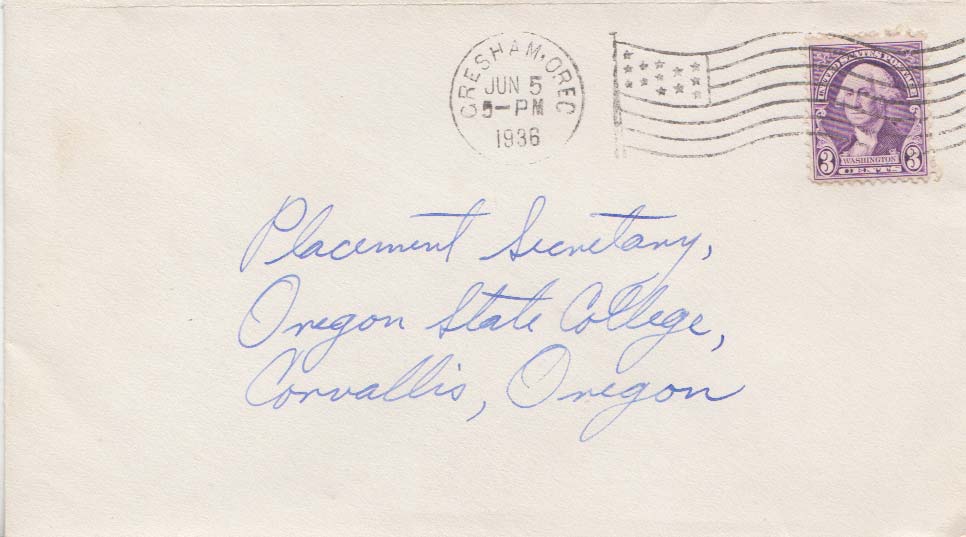 GRESHAM, OREG
JUN 5
5-PM
1936
UNITED STATES POSTAGE
3 WASHINGTON 3
CENTS
Placement Secretary,
Oregon State College,
Corvallis, Oregon